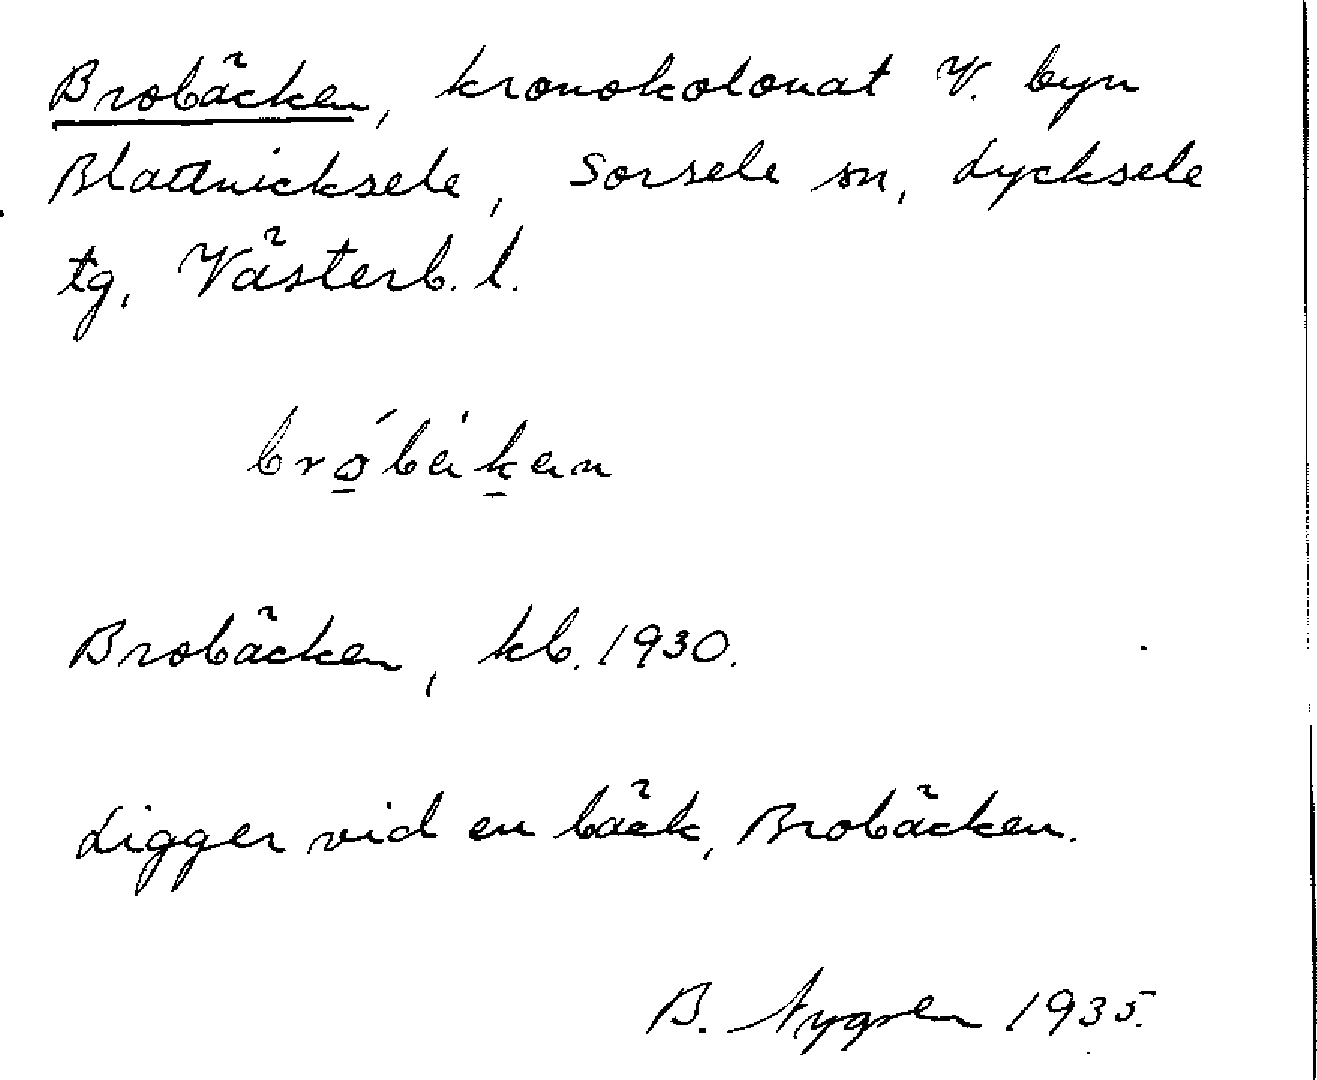 Brobäcken, kronokolonat V. byn
Blattnicksele, Sorsele sn, Lycksele
tg, Västerb. l.
bro̲´bäˈk̲än
Brobäcken, kb. 1930.
Ligger vid en bäck, Brobäcken.
B. Nygren 1935.